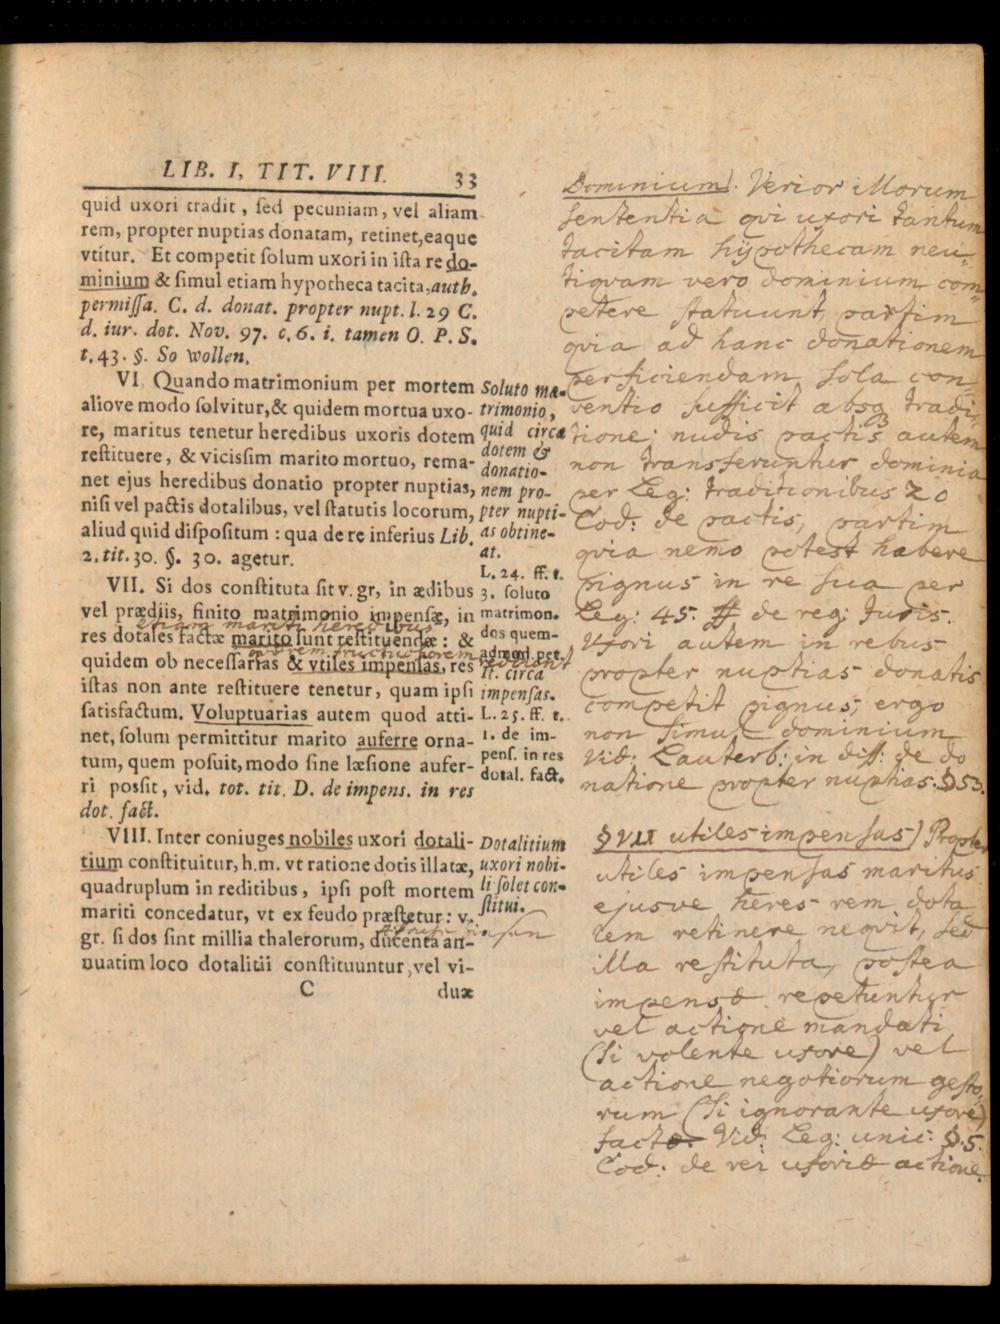 LIB. I, TIT. VIII. 33
quid uxori tradit, ſed pecuniam, vel aliam
rem, propter nuptias donatam, retinet, eaque
vtitur. Et competit ſolum uxori in iſta re do-
minium & ſimul etiam hypotheca tacita, auth.
permiſſa. C. d. donat. propter nupt. l. 29 C.
d. iur. dot. Nov. 97. c. 6. i. tamen O. P. S.
t. 43. §. So wollen.
VI. Quando matrimonium per mortem
aliove modo ſolvitur, & quidem mortua uxo-
re, maritus tenetur heredibus uxoris dotem
reſtituere, & viciſſim marito mortuo, rema-
net ejus heredibus donatio propter nuptias,
niſi vel pactis dotalibus, vel ſtatutis locorum,
aliud quid diſpoſitum : qua de re inferius Lib.
2. tit. 30. §. 30. agetur.
Soluto ma-
trimonio,
quid circa
dotem &
donatio-
nem pro-
pter nupti-
as obtine-
at.
VII. Si dos conſtituta ſit v. gr, in ædibus
vel prædiis, finito matrimonio impenſæ, in
etiam mariti heredibus
res dotales factæ marito ſunt reſtituendæ : &
quidem ob neceſſarias & vtiles impenſas, res
iſtas non ante reſtituere tenetur, quam ipſi
ſatisfactum. Voluptuarias autem quod atti-
net, ſolum permittitur marito auferre orna-
tum, quem poſuit, modo ſine læſione aufer-
ri poſſit, vid. tot. tit. D. de impens. in res
dot. fact.
L. 24. ff. t.
3. ſoluto
matrimon.
dos quem-
admod. pet.
ſt. circa
impenſas.
L. 25. ff. t.
1. de im-
penſ. in res
dotal. fact.
VIII. Inter coniuges nobiles uxori dotali-
tium conſtituitur, h. m. vt ratione dotis illatæ,
quadruplum in reditibus, ipſi poſt mortem
mariti concedatur, vt ex feudo præſtetur: v.
gr. ſi dos ſint millia thalerorum, ducenta an-
nuatim loco dotalitii conſtituuntur, vel vi-
C duæ
Dotalitium
uxori nobi-
li ſolet con-
ſtitui.
Dominium). Verior illorum
sententia qvi uxori tantum
tacitam hypothecam neu-
tiqvam vero dominium com-
petere statuunt, partim
qvia ad hanc donationem
perficiendam sola con
ventio sufficit absq tradi-
tione; nudis pactis autem
non transferuntur dominia
per Leg: traditionibus 20
Cod: de pactis, partim
qvia nemo potest habere
pignus in re sua per
Leg: 45. ff de reg: Juris.
Uxori autem in rebus
propter nuptias donatis
competit pignus, ergo
non simul dominium
Vid: Lauterb: in diss: de do
natione propter nuptias. §53.
§ VII utiles impensas) Propter
utiles impensas maritus
ejusve heres rem dota
lem retinere neqvit, sed
illa restituta, postea
impensæ repetuntur
vel actione mandati
(si volente uxore) vel
actione negotiorum gesto-
rum (si ignorante uxore)
Vid: Leg: unic: §.5.
Cod: de rei uxoriæ actione.